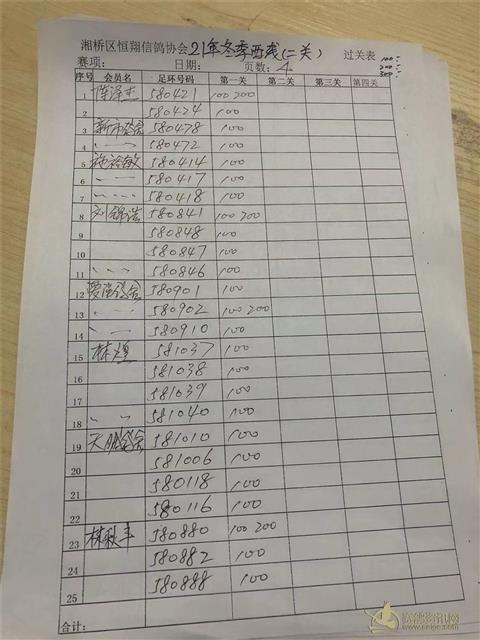 湘桥区恒翔信鸽协会 21年冬季西线(二关) 过关表
赛项: 日期: 页数: 4
100
200
300
序号 会员名 足环号码 第一关 第二关 第三关 第四关
1 陈泽杰 580421 100 200
2 580424 100
3 580478 100
4 580472 100
5 施裕敏 580414 100
6 580417 100
7 580418 100
8 刘锦浩 580841 100 200
9 580848 100
10 580847 100
11 580846 100
12 580901 100
13 580902 100 200
14 580910 100
15 林煌 581037 100
16 581038 100
17 581039 100
18 581040 100
19 天鹏鸽舍 581010 100
20 581006 100
21 580118 100
22 580116 100
23 林秋丰 580880 100 200
24 580882 100
25 580888 100
合计: